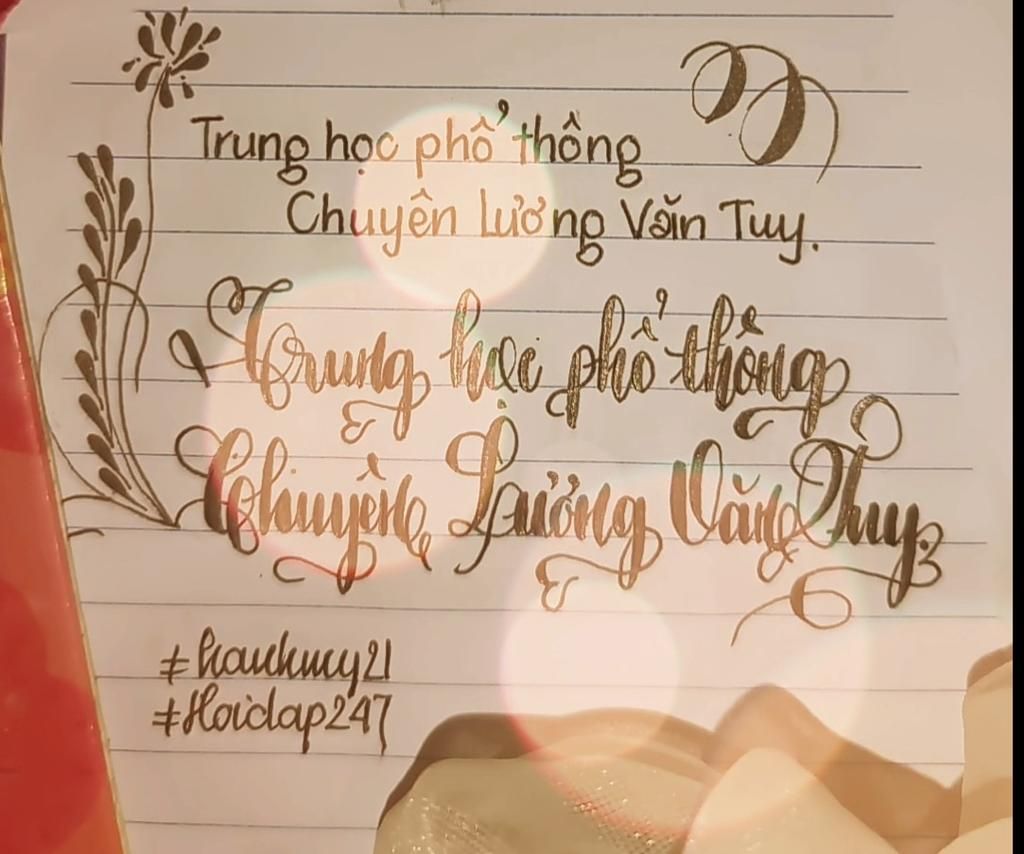 Trung học phổ thông
Chuyên Lương Văn Tuy.
Trung học phổ thông
Chuyên Lương Văn Tuy
#Hoidap247